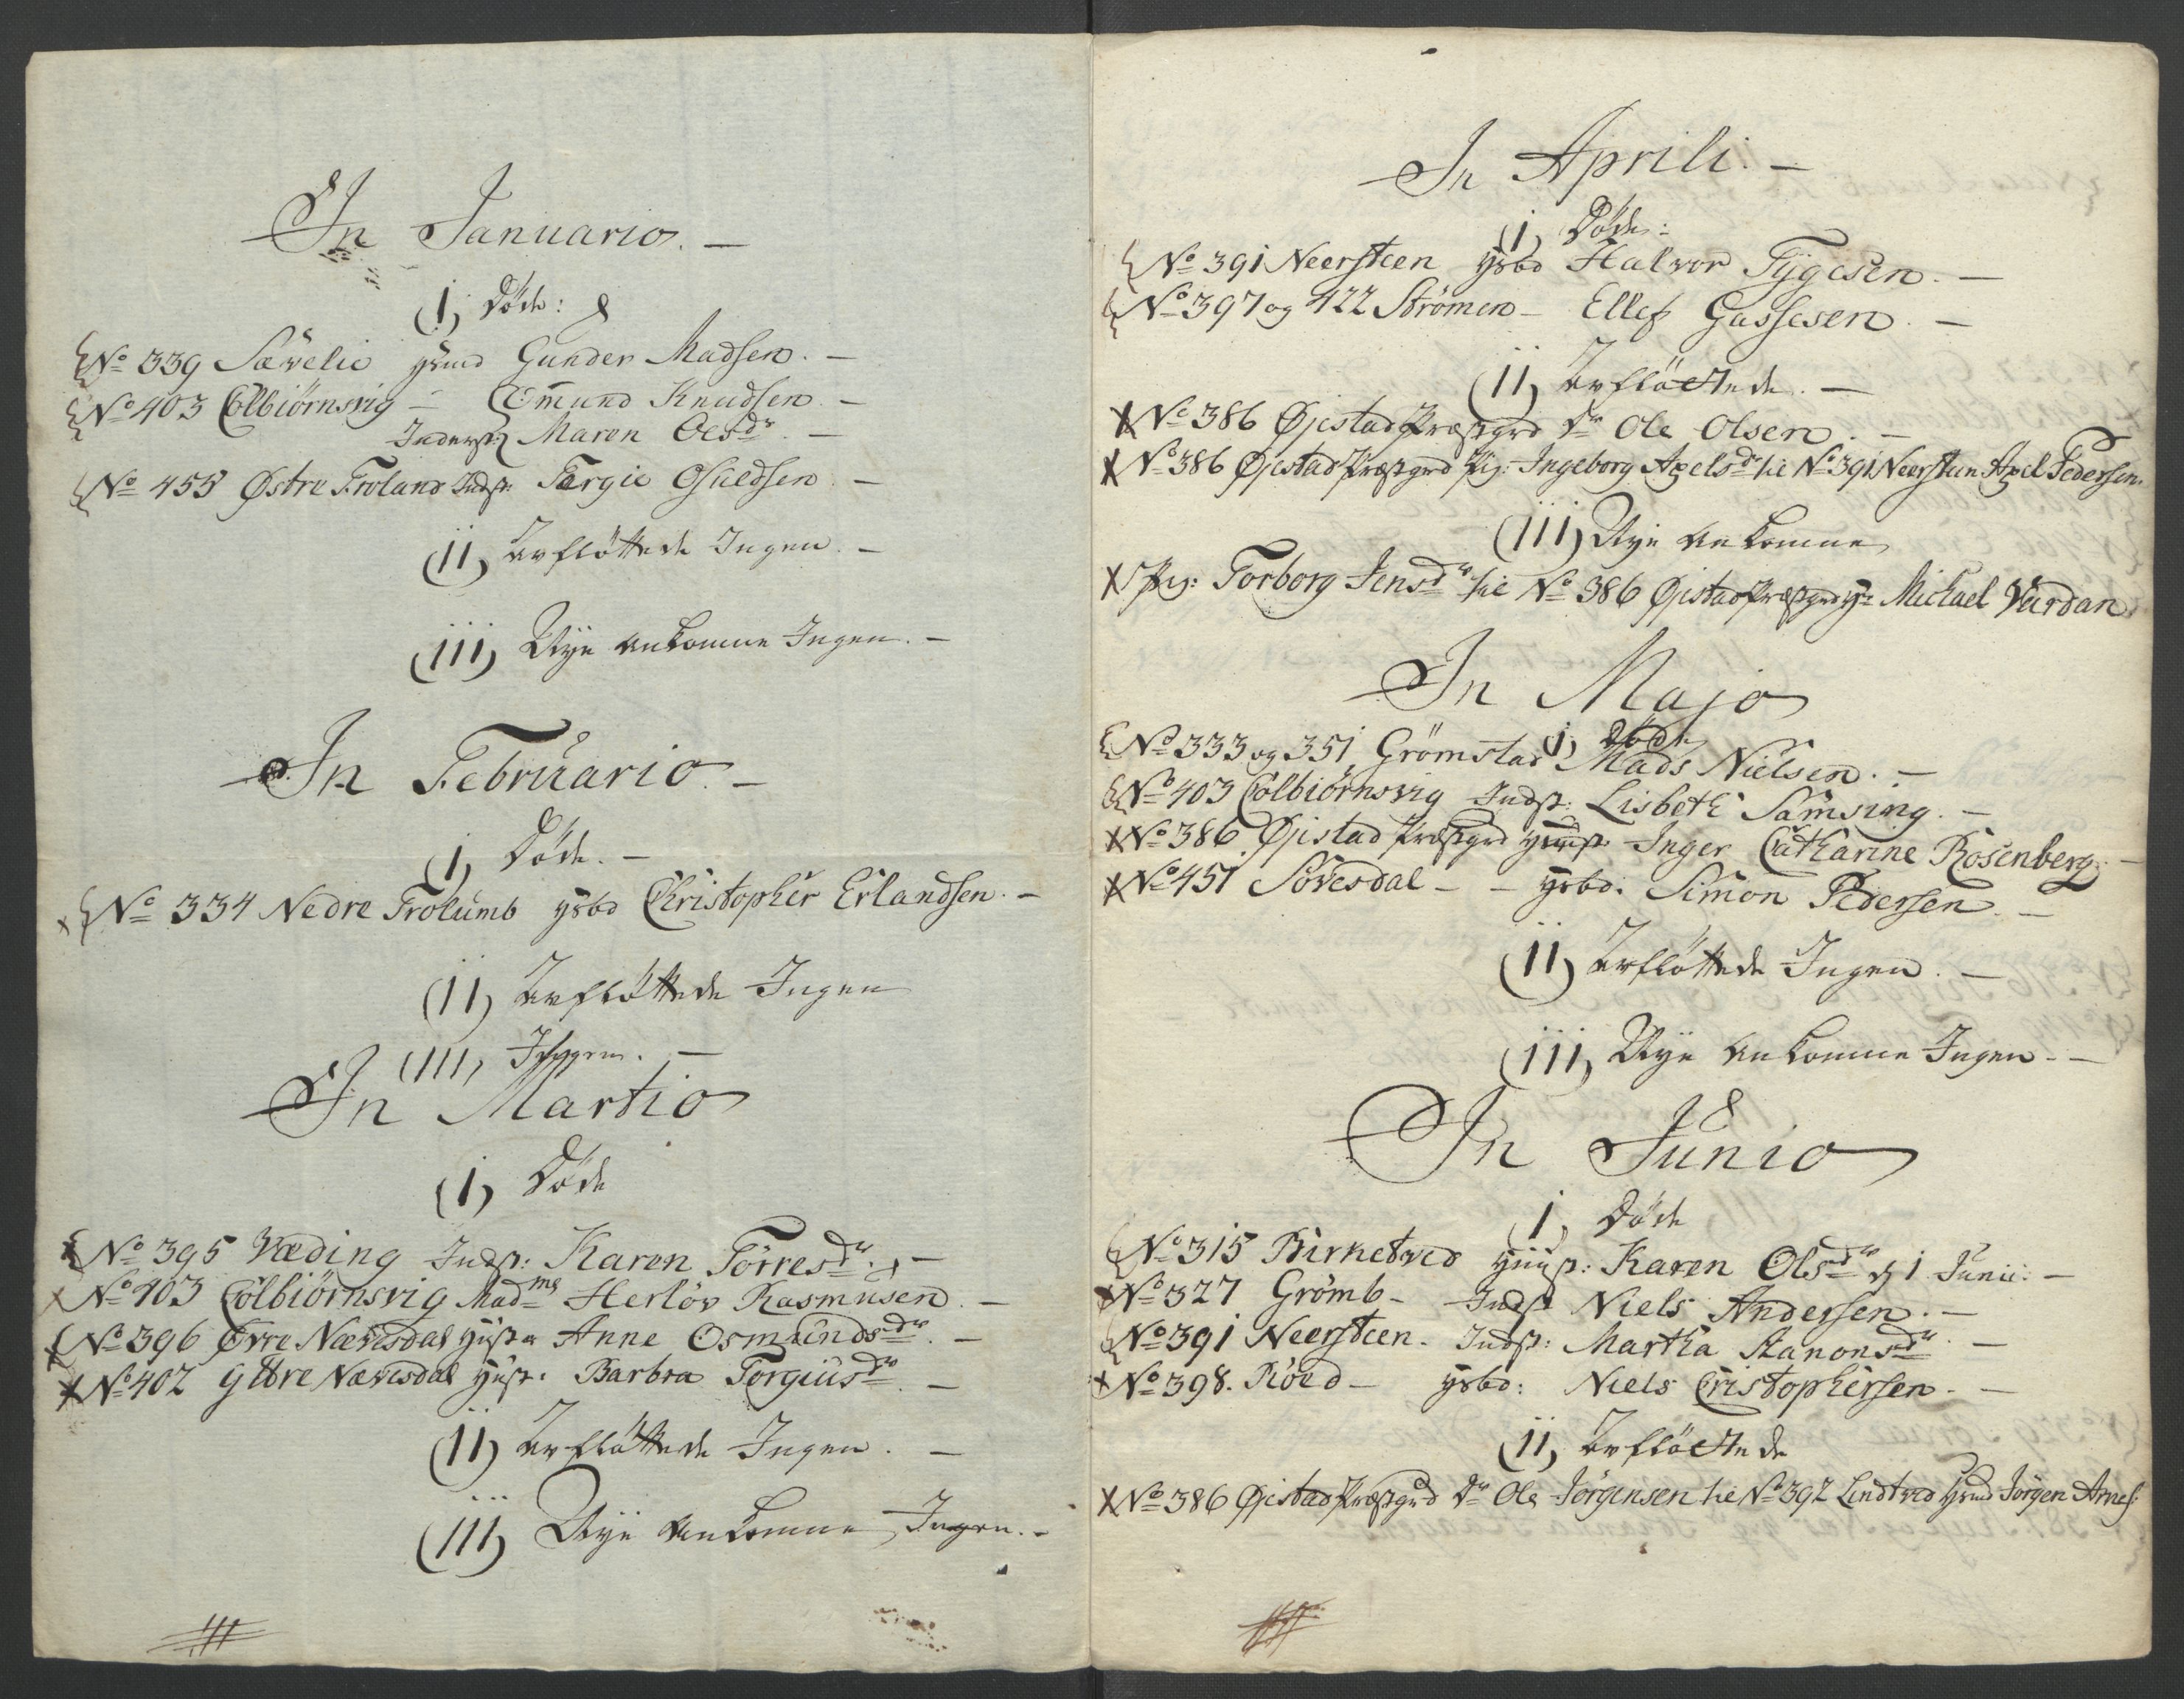 In Januario. —
(1, Døde:
No 339 Sævelie hsbd Gunder Madsen. —
No 403 Colbiörnsvig — Omund Knudsen. —
Inderst: Maren Olsdr. —
No 455 Østre Froland Indst: Tergie Osuldsen. —
(11, Bortflöttede Ingen. —
(111, Nye ankomne Ingen. —
In Februario. —
(1, Døde. —
No 334 Nedre Frolumb hsbd Christopher Erlandsen. —
(11, Bortflöttede Ingen
(111, Ingen. —
In Martio
(1, Døde
No 395 Væding Indst: Karen Törresdr. —
No 403 Colbiörnsvig Madme Herlöv Rasmusen. —
No 396 Øvre Nævesdal hust: Anne Osmundsdr. —
No 402 Yttre Nævesdal hust: Barbra Torgiusdr. —
(11, Bortflöttede Ingen. —
(111, Nye ankomne Ingen. —
In Aprili. —
(1, Døde:
No 391 Neersteen hsbd Halvor Tygesen. —
No 397 og 422 Strömen — Ellef Gassesen. —
(11, Bortflöttede. —
No 386 Øjestad Præstgrd Dr Ole Olsen. —
No 386 Øjestad Præstgrd Pig: Ingeborg Axelsdr til No 391 Neersteen Axel Pedersen.
(111, Nye ankomne
Pig: Torborg Jensdr til No 386 Øjestad Præstgrd Hr Michael Vardan
In Majo
(1, Døde
No 333 og 351, Grömstad Mads Nielsen. —
No 403 Colbiörnsvig Indst: Lisbeth Samsing. —
No 386 Øjestad Præstgrd hust: Inger Catharine Rosenberg. —
No 451 Sövesdal — — hsbd: Simon Pedersen. —
(11, Bortflöttede Ingen. —
(111, Nye ankomne Ingen. —
In Junio
1, Døde
No 315 Birketved hust: Karen Olsdr d 1 Junii. —
No 327 Grömb — Indst Niels Andersen. —
No 391 Neersteen. Indst: Martha Aanonsdr. —
No 398. Röed — hsbd: Niels Cristophersen. —
(11, Bortflöttede
No 386 Øjestad Præstgrd Dr Ole Jörgensen til No 392 Lindtved hsbd Jörgen Arnes: